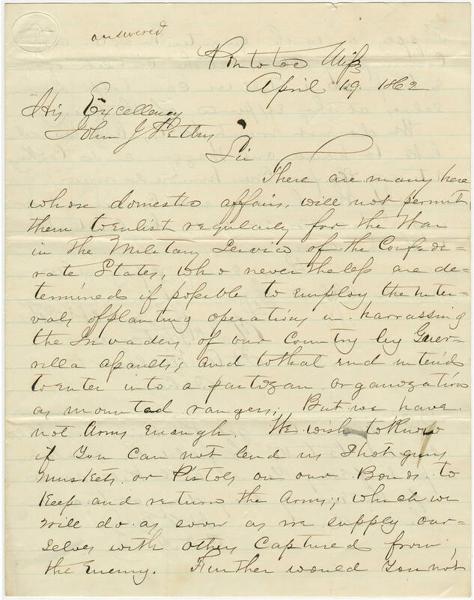 answered
Pontotoc Miss
April 29. 1862
His Excellency
John J Pettus
Sir
There are many here
whose domestic affairs, will not permit
them to enlist regularly for the War
in the Military Service of the Confede-
rate States, who nevertheless are de-
termined if possible to employ the inter-
vals of planting operations in harrassing
the Invaders of our Country by Guer-
rilla assaults; and to that end intend
to enter into a partizan organization
as mounted rangers; But we have
not Arms enough. We wish to know
if You can not lend us Shot guns
muskets or Pistols on our Bonds to
Keep and return the Arms; which we
will do as soon as we supply our-
selves with others captured from
the enemy. Further would You not